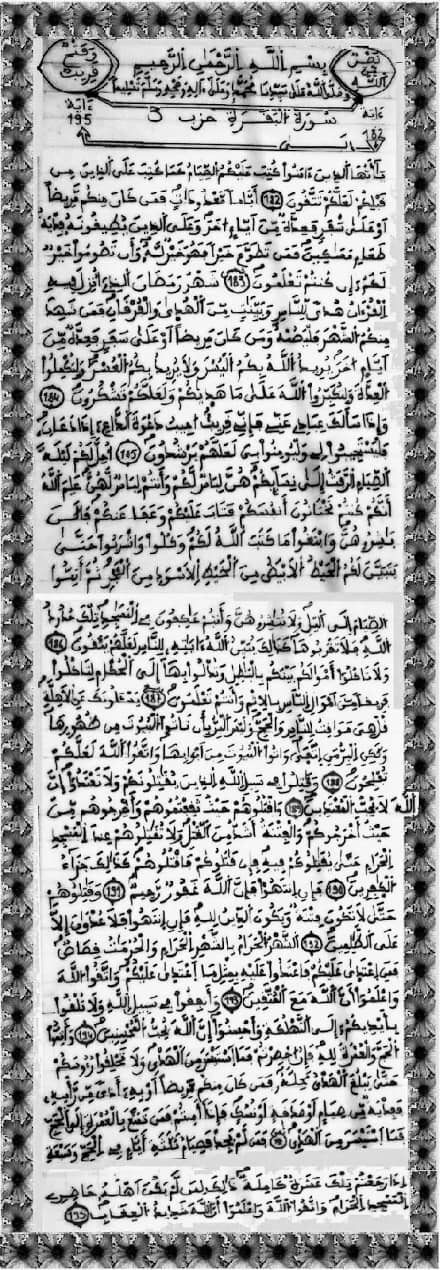 بسم الله الرحمن الرحيم
وصلى الله على سيدنا محمد وعلى آله وصحبه وسلم تسليما
سورة البقرة حزب 3
ءاية 182
ءاية 195
إلى
يأيها الذين ءامنوا كتب عليكم الصيام كما كتب على الذين من
قبلكم لعلكم تتقون 182 أياما معدودات فمن كان منكم مريضا
أو على سفر فعدة من أيام أخر وعلى الذين يطيقونه فدية
طعام مسكين فمن تطوع خيرا فهو خير له وأن تصوموا خير
لكم إن كنتم تعلمون 183 شهر رمضان الذي أنزل فيه
القرءان هدى للناس وبينات من الهدى والفرقان فمن شهد
منكم الشهر فليصمه ومن كان مريضا أو على سفر فعدة من
أيام أخر يريد الله بكم اليسر ولا يريد بكم العسر ولتكملوا
العدة ولتكبروا الله على ما هديكم ولعلكم تشكرون 184
وإذا سألك عبادي عني فإني قريب أجيب دعوة الداع إذا دعان
فليستجيبوا لي وليومنوا بي لعلهم يرشدون 185 أحل لكم ليلة
الصيام الرفث إلى نسايكم هن لباس لكم وأنتم لباس لهن علم الله
أنكم كنتم تختانون أنفسكم فتاب عليكم وعفا عنكم فالن
باشروهن وابتغوا ما كتب الله لكم وكلوا واشربوا حتى
يتبين لكم الخيط الأبيض من الخيط الأسود من الفجر ثم أتموا
الصيام إلى اليل ولا تباشروهن وأنتم عاكفون في المساجد تلك حدود
الله فلا تقربوها كذلك يبين الله ءايته للناس لعلهم يتقون 186
ولا تاكلوا أموالكم بينكم بالباطل وتدلوا بها إلى الحكام لتاكلوا
فريقا من أموال الناس بالإثم وأنتم تعلمون 187 يسألونك عن الأهلة
قل هي مواقيت للناس والحج وليس البر بأن تاتوا البيوت من ظهورها
ولكن البر من اتقى وأتوا البيوت من أبوابها واتقوا الله لعلكم
تفلحون 188 وقاتلوا في سبيل الله الذين يقاتلونكم ولا تعتدوا إن
الله لا يحب المعتدين 189 واقتلوهم حيث ثقفتموهم وأخرجوهم من
حيث أخرجوكم والفتنة أشد من القتل ولا تقاتلوهم عند المسجد
الحرام حتى يقاتلوكم فيه فإن قاتلوكم فاقتلوهم كذلك جزاء
الكفرين 190 فإن انتهوا فإن الله غفور رحيم 191 وقاتلوهم
حتى لا تكون فتنة ويكون الدين لله فإن انتهوا فلا عدوان إلا
على الظلمين 192 الشهر الحرام بالشهر الحرام والحرمت قصاص
فمن اعتدى عليكم فاعتدوا عليه بمثل ما اعتدى عليكم واتقوا الله
واعلموا أن الله مع المتقين 193 وأنفقوا في سبيل الله ولا تلقوا
بأيديكم إلى التهلكة وأحسنوا إن الله يحب المحسنين 194 وأتموا
الحج والعمرة لله فإن أحصرتم فما استيسر من الهدي ولا تحلقوا رءوسكم
حتى يبلغ الهدي محله فمن كان منكم مريضا أو به أذى من رأسه
ففدية من صيام أو صدقة أو نسك فإذا أمنتم فمن تمتع بالعمرة إلى الحج
فما استيسر من الهدي فمن لم يجد فصيام ثلثة أيام في الحج وسبعة
إذا رجعتم تلك عشرة كاملة ذلك لمن لم يكن أهله حاضري
المسجد الحرام واتقوا الله واعلموا أن الله شديد العقاب 195